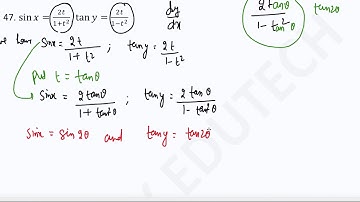 47. sin x = 2t/1+t² , tan y = 2t/1-t² dy/dx
2tanθ/1-tan²θ tan2θ
sinx = 2t/1+t² ; tany = 2t/1-t²
Put t = tanθ
sinx = 2tanθ/1+tan²θ ; tany = 2tanθ/1-tan²θ
sinx = sin2θ and tany = tan2θ
EDUTECH